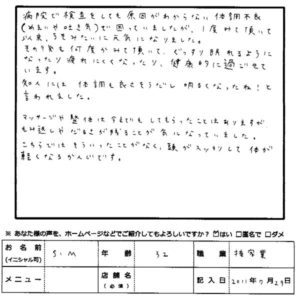 病院で検査をしても原因がわからない体調不良
(めまいや吐き気)で困っていましたが、1度みて頂いて
以来、うそみたいに元気になりました。
その後も何度かみて頂いて、ぐっすり眠れるように
なったり疲れにくくなったり、健康的に過ごせて
います。
知人には 体調も良さそうだし 明るくなったね!と
言われました。
マッサージや整体は今までもしてもらったことはありますが、
もみ返しやだるさが残ることが気になっていました。
こちらではそういったことがなく、頭がスッキリして体が
軽くなるかんじです。
※ あなた様の声を、ホームページなどでご紹介してもよろしいですか? ☑はい □匿名で □ダメ
お名前 (イニシャル可) S.M 年齢 32 職業 接客業
メニュー 店舗名 (必須) 記入日 2011年9月23日